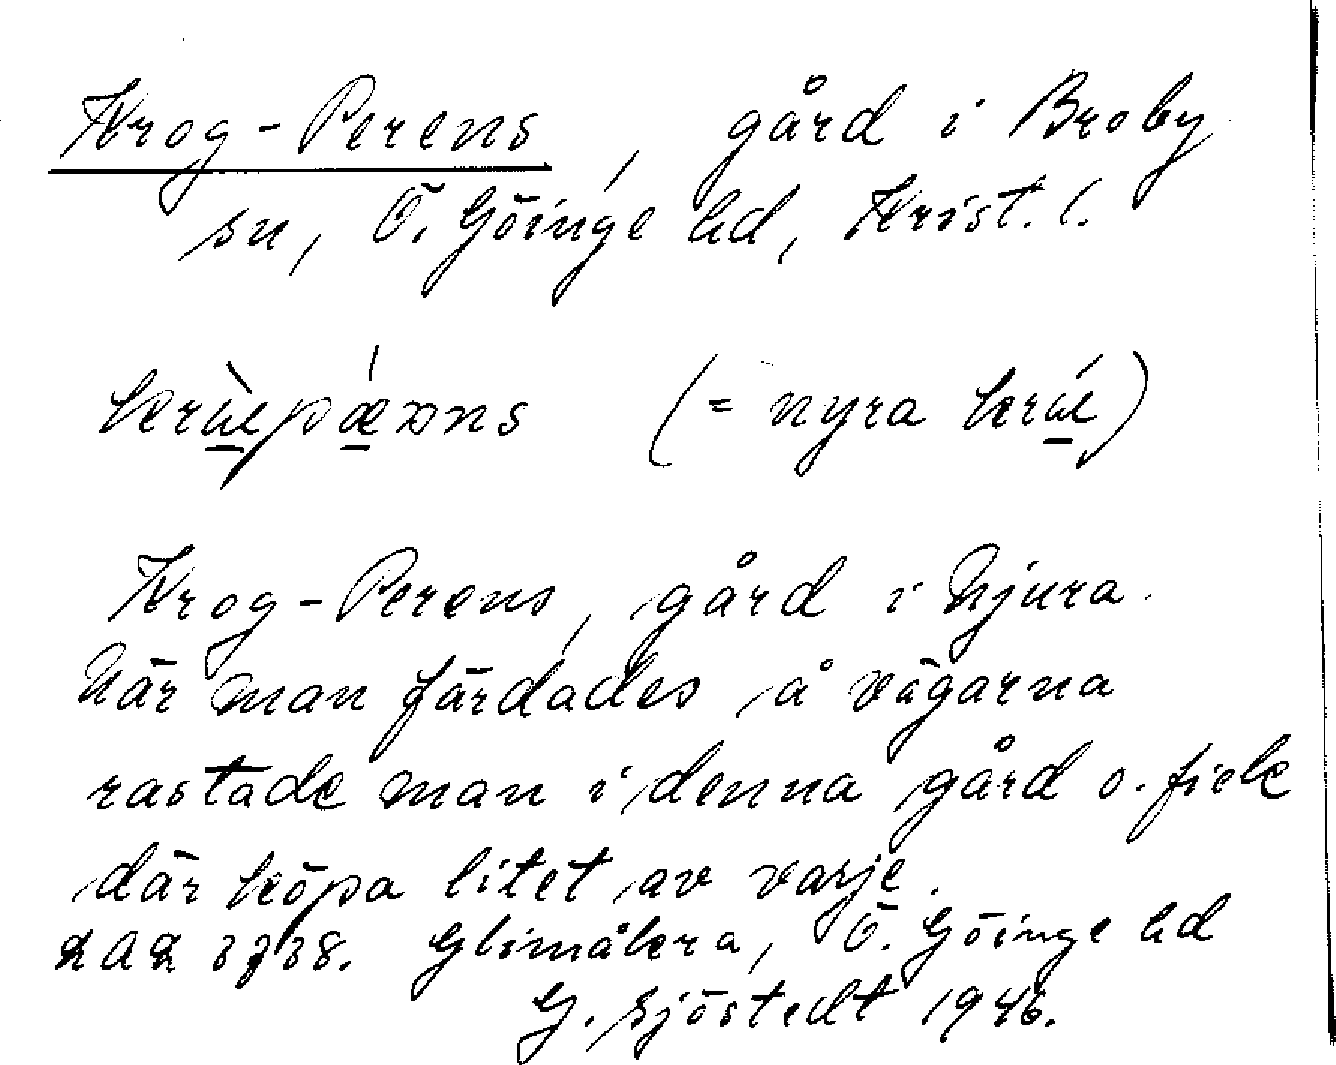 Krog-Perens, gård i Broby
sn, Ö. Göinge hd, Krist. l.
(= nyra
Krog-Perens, gård i Njura.
När man färdades å vägarna
rastade man i denna gård o. fick
där köpa litet av varje.
Glimåkra, Ö. Göinge hd
G. Sjöstedt 1946.